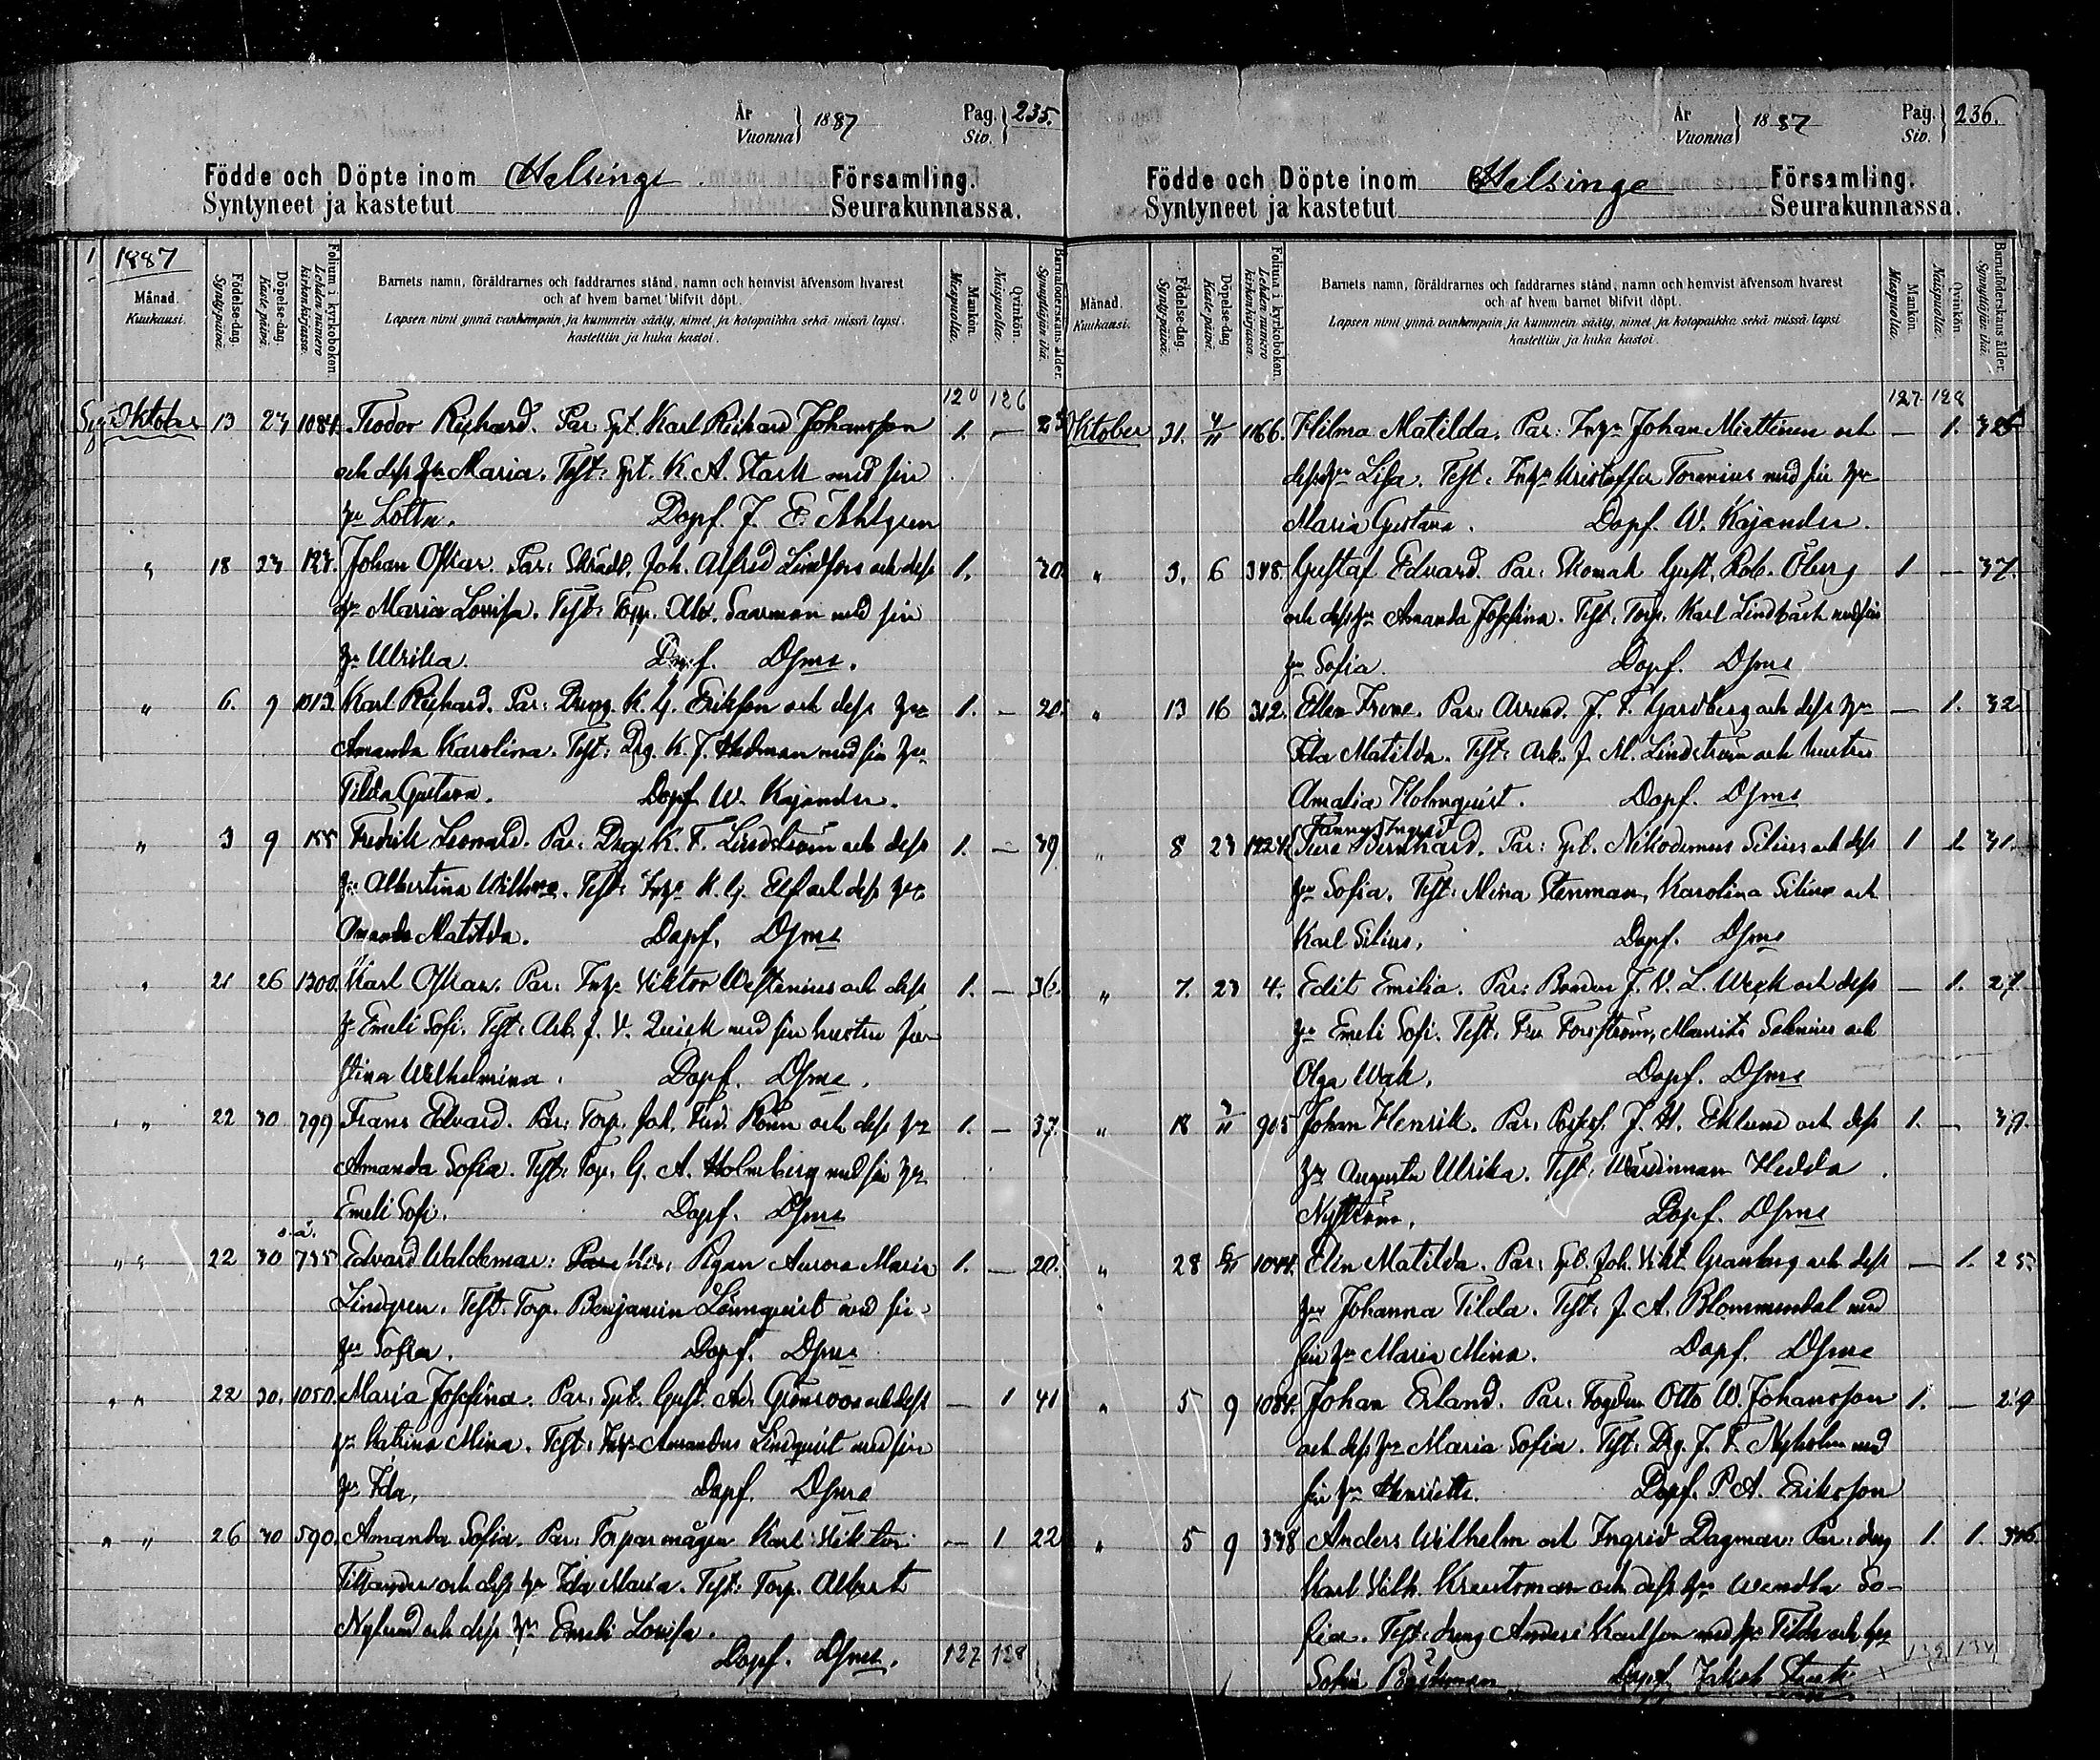 År Vuonna 1887 Pag. Siv. 235.
Födde och Döpte inom Helsinge Församling.
Syntyneet ja kastetut Seurakunnassa.
1 1887
Månad. Kuukausi.
Födelse-dag. Syntypäivä.
Döpelse-dag. Kastepäivä.
Folium i kyrkoboken. Lehden numero kirkonkirjassa.
Barnets namn, föräldrarnes och faddrarnes stånd, namn och hemvist äfvensom hvarest
och af hvem barnet blifvit döpt.
Lapsen nimi ynnä vanhempain ja kummein sääty, nimet ja kotopaikka sekä missä lapsi
kastettiin ja kuka kastoi.
Mankön. Miespuolia.
Qvinkön. Naispuolia.
Barnaföderskans ålder. Synnyttäjän ikä.
120 126
Oktober 13 23 1084. Teodor Richard. Par. Spt. Karl Richard Johansson 1. — 23
och dess hu Maria. Test: Spt. K. A. Stark med sin
hu Lotta. Döpf. J. E. Ahlgren
" 18 23 Johan Oskar. Par: Skrädd. Joh. Alfred Lindfors och dess 1. 30.
hu Maria Lovisa. Test: Torp. Alex. Saarman med sin
hu Ulrika. Döpf. Dsme.
" 6. 9 1013. Karl Richard. Par: Dreng. K. G. Erikson och dess hu 1. — 20.
Amanda Karolina. Test: Drg. K. J. Hedman med sin hu
Tilda Gustava. Döpf. W. Kajander.
" 3 9 155 Fredrik Leonard. Par: Drg. K. F. Lindström och dess 1. — 39
hu Albertina Wilhma. Test: Inhs K. G. Elf och dess hu
Amanda Matilda. Döpf. Dsme
" 21 26 1300. Karl Oskar. Par: Inhs Viktor Westenius och dess 1. — 36.
hu Emeli Sofi. Test: Arb. J. V. Quick med sin hustru
Stina Wilhelmina. Döpf. Dsme.
" 22 30 799 Frans Edvard. Par: Torp. Joh. Ferd. Rönn och dess hu 1. — 37.
Amanda Sofia. Test: Torp. G. A. Holmberg med sin hu
Emeli Sofi. Döpf. Dsme
o.ä.
" " 22 30 735 Edvard Waldemar: Mor: Pigan Aurora Maria 1. — 20.
Lindgren. Test. Torp. Benjamin Lönnquist med sin
hu Sofia. Döpf. Dsme
" " 22 30. 1050. Maria Josefina. Par. Spt. Gust. Ad. Grönroos och dess — 1 41
hu Katrina Mina. Test: Inhs Amandus Lindquist med sin
hu Ida. Döpf. Dsme
" " 26 30 590. Amanda Sofia. Par: Torparmågen Karl Viktor — 1 22
Tillander och dess hu Ida Maria. Test: Torp. Albert
Nylund och dess hu Emeli Lovisa.
Döpf. Dsme. 127 128
År Vuonna 1887 Pag. Siv. 236.
Födde och Döpte inom Helsinge Församling.
Syntyneet ja kastetut Seurakunnassa.
Månad. Kuukausi.
Födelse-dag. Syntypäivä.
Döpelse-dag Kastepäivä.
Folium i kyrkoboken. Lehden numero kirkonkirjassa.
Barnets namn, föräldrarnes och faddrarnes stånd, namn och hemvist äfvensom hvarest
och af hvem barnet blifvit döpt.
Lapsen nimi ynnä vanhempain ja kummein sääty, nimet ja kotopaikka sekä missä lapsi
kastettiin ja kuka kastoi.
Mankön. Miespuolia.
Qvinkön Naispuolia.
Barnaföderskans ålder. Synnyttäjän ikä.
127 128
Oktober 31. 4/11 1166. Hilma Matilda. Par: Inhs Johan Miettinen och — 1.
dess hu Lisa. Test: Inhs Kristoffer Torenius med sin hu
Maria Gustava. Döpf. W. Kajander.
" 3. 6 348. Gustaf Edvard. Par: Skomak Gust. Rob. Öberg 1 — 37.
och dess hu Amanda Josefina. Test: Torp. Karl Lindbäck med sin
hu Sofia. Döpf. Dsme
" 13 16 312. Ellen Irene. Par: Arrend. J. F. Gardberg och dess hu — 1. 32
Ida Matilda. Test: Arb. J. M. Lindström och hustru
Amalia Holmquist. Döpf. Dsme
Fanny Ingrid
" 8 23 1224. Ture Bernhard. Par: Spt. Nikodemus Silius och dess 1 1 31.
hu Sofia. Test: Mina Stenman, Karolina Silius och
Karl Silius. Döpf. Dsme
" 7. 23 4. Edit Emilia. Par: Bonden J. V. L. Weck och dess — 1. 27.
hu Emeli Sofi. Test. Fru Forsström, Maurits Salenius och
Olga Wek. Döpf. Dsme
" 18 3/11 905 Johan Henrik. Par. J. H. Eklund och dess 1. — 39.
hu Augusta Ulrika. Test: Hedda
Nyström. Döpf. Dsme
" 28 6/11 1044. Elin Matilda. Par: Spt. Joh. Vikt. Granberg och dess — 1. 25
hu Johanna Tilda. Test: J. A. Blommendal med
sin hu Maria Mina. Döpf. Dsme
" 5 9 1084. Johan Erland. Par: Fogden Otto W. Johansson 1. — 29
och dess hu Maria Sofia. Test: Drg. J. F. Nyholm med
sin hu Henriette. Döpf. P. A. Eriksson
" 5 9 338 Anders Wilhelm och Ingrid Dagmar. Par: dreng 1. 1. 36.
Karl Vilh. Kreutsman och dess hu Wendla So-
fia. Test: dreng Anders Karlsson med hu Tilda och hu
Sofia Bäckman Döpf. Jakob Stark